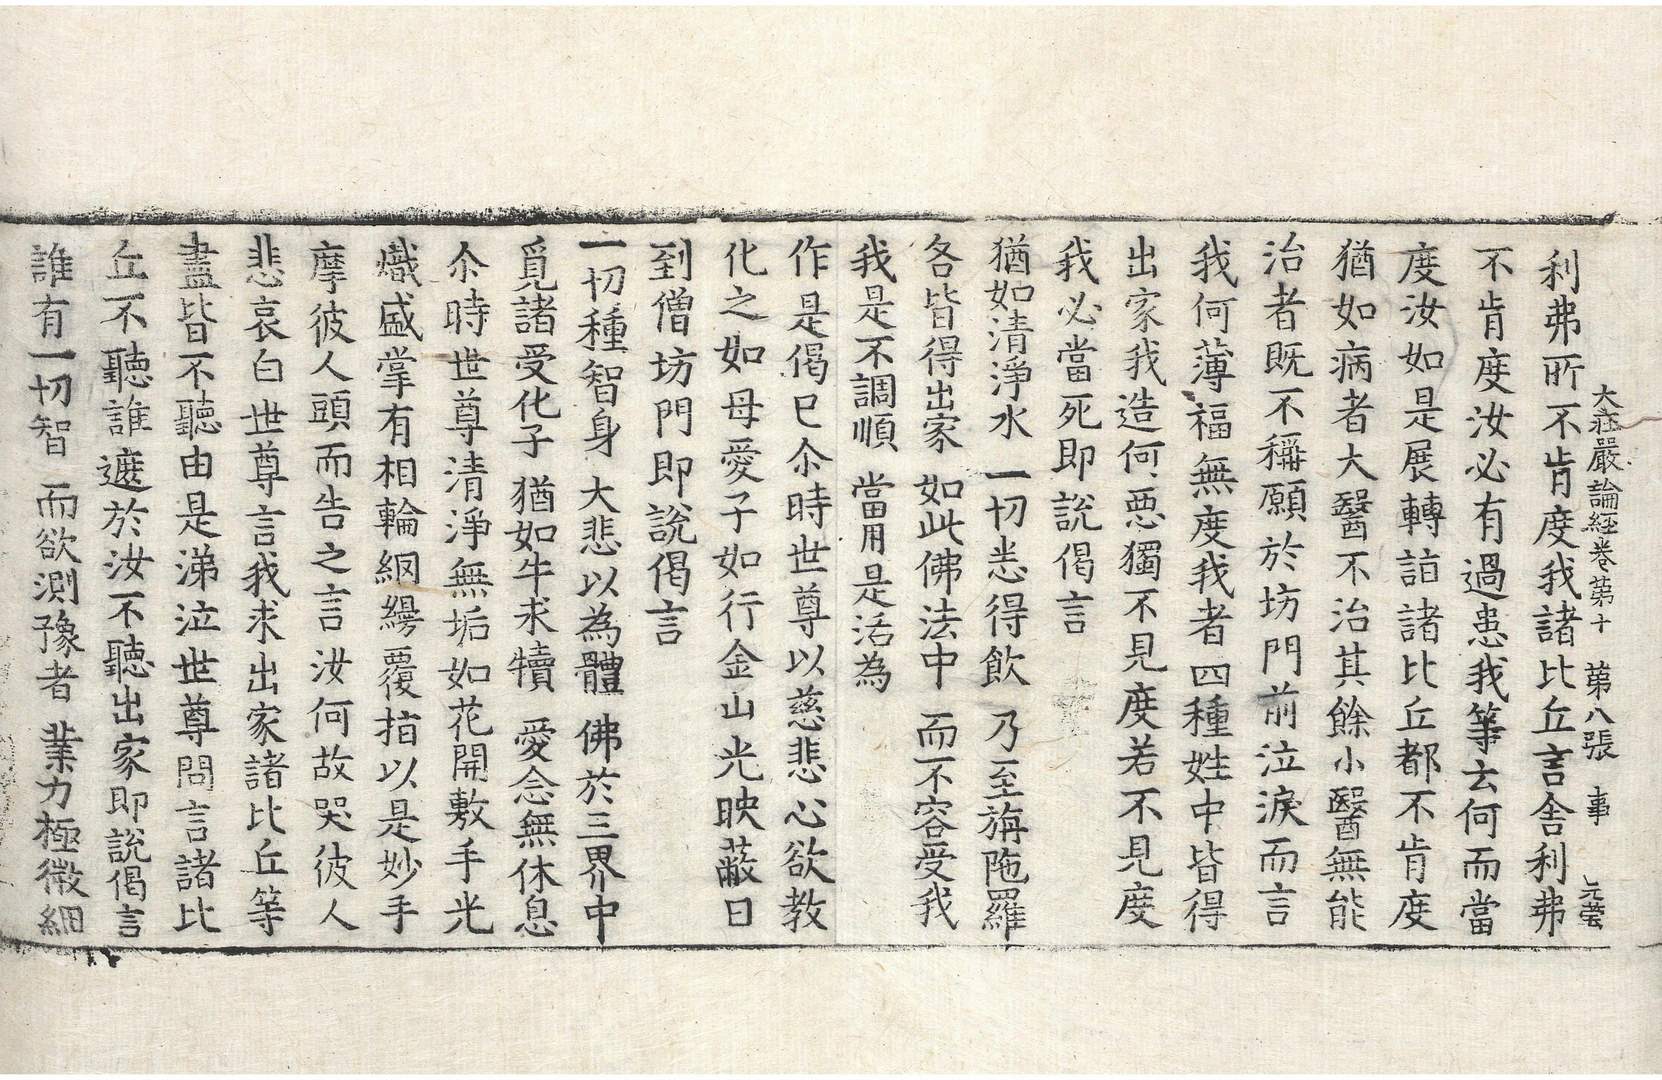 大莊嚴論経卷第十 第八張 事 元瑩
利弗所不肯度我諸比丘言舍利弗
不肯度汝必有過患我等云何而當
度汝如是展轉詣諸比丘都不肯度
猶如病者大醫不治其餘小醫無能
治者既不稱願於坊門前泣淚而言
我何薄福無度我者四種姓中皆得
出家我造何惡獨不見度若不見度
我必當死即說偈言
猶如清淨水 一切悉得飲 乃至旃陁羅
各皆得出家 如此佛法中 而不容受我
我是不調順 當用是活為
作是偈已尒時世尊以慈悲心欲教
化之如母愛子如行金山光映蔽日
到僧坊門即說偈言
一切種智身 大悲以為體 佛於三界中
覓諸受化子 猶如牛求犢 愛念無休息
尒時世尊清淨無垢如花開敷手光
熾盛掌有相輪網縵覆指以是妙手
摩彼人頭而告之言汝何故哭彼人
悲哀白世尊言我求出家諸比丘等
盡皆不聽由是涕泣世尊問言諸比
丘不聽誰遮於汝不聽出家即說偈言
誰有一切智 而欲測豫者 業力極微細